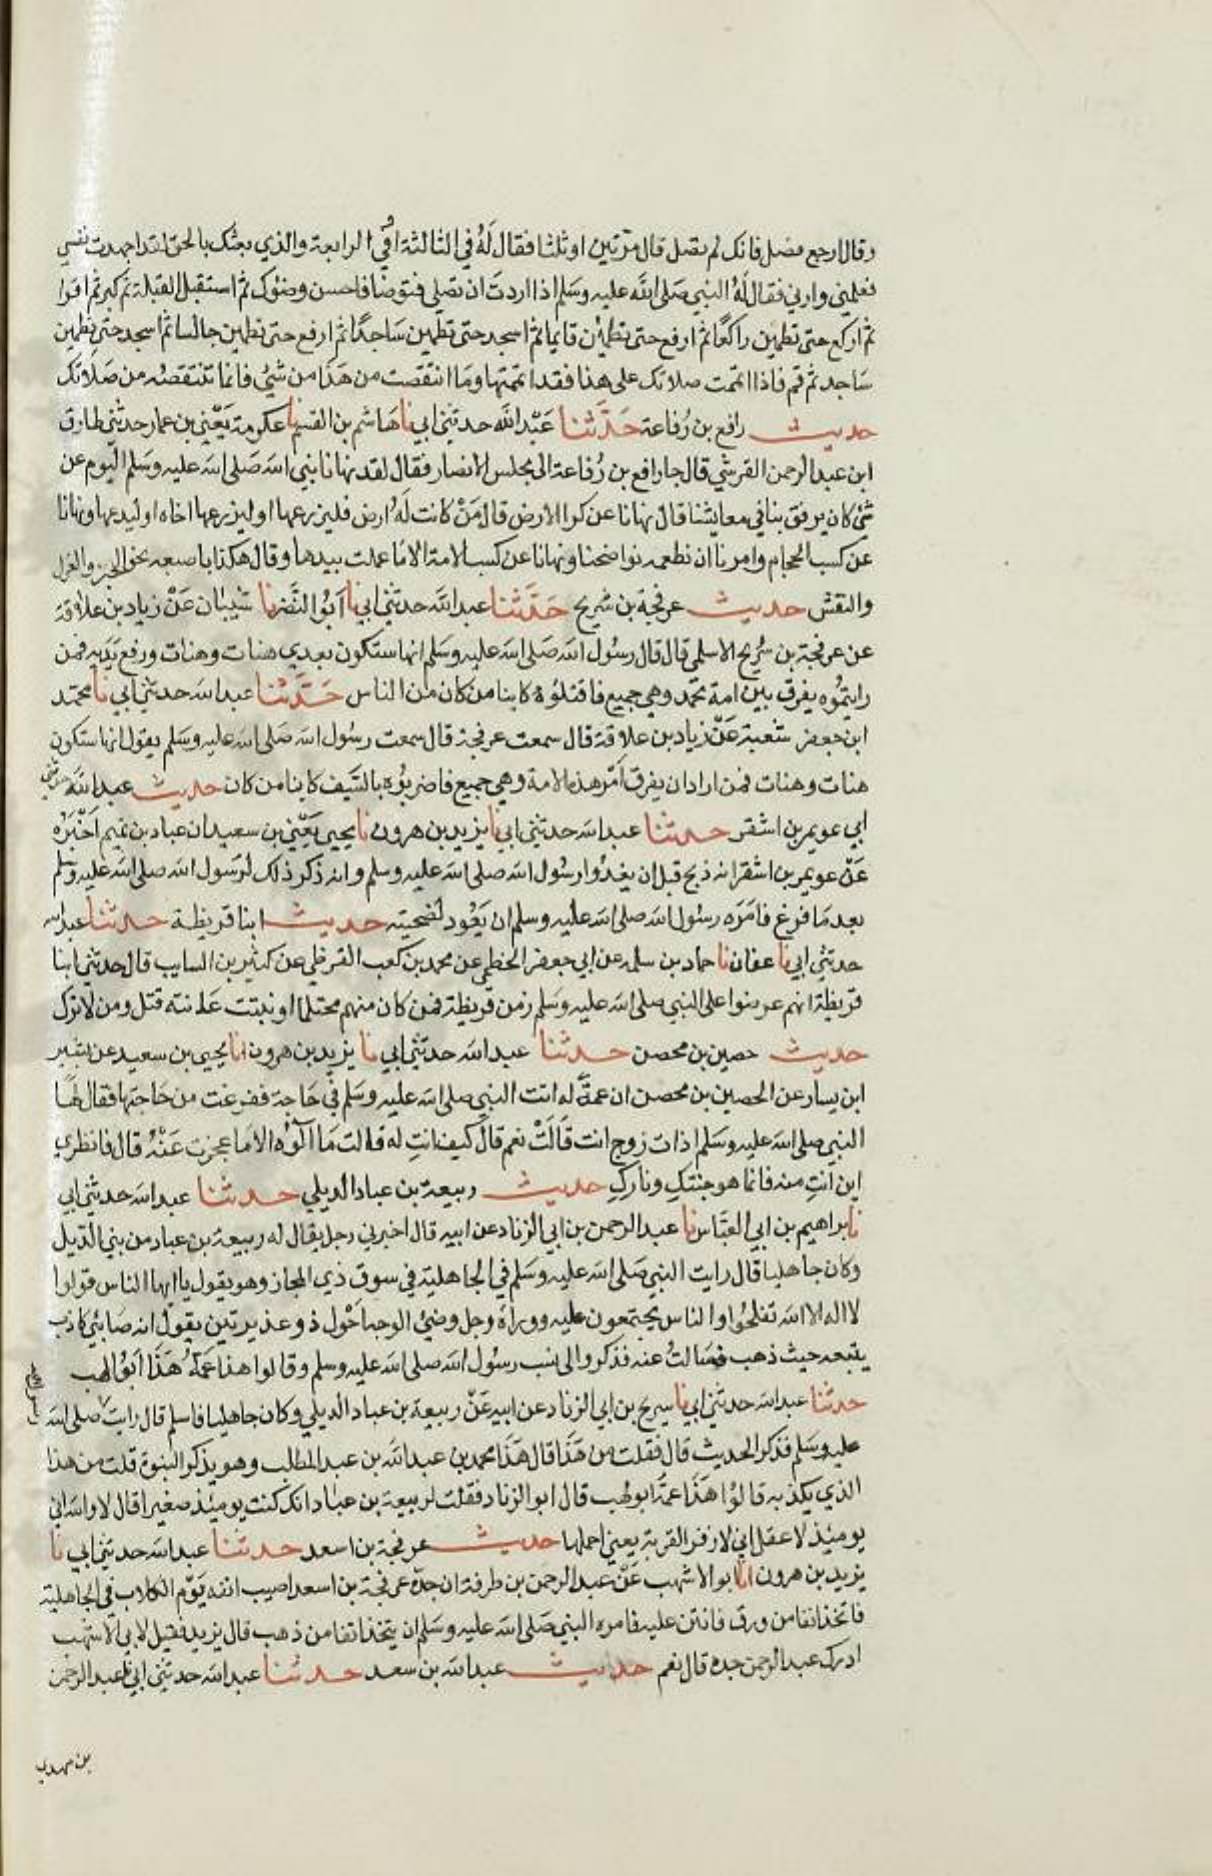 وقال ارجع فصل فانك لم تصل قال مرتين او ثلثا فقال له في الثالثة او في الرابعة والذي بعثك بالحق لقد اجهدت نفسي
فعلمني وارني فقال له النبي صلى الله عليه وسلم اذا اردت ان تصلي فتوضا فاحسن وضوك ثم استقبل القبلة ثم كبر ثم اقرا
ثم اركع حتى تطمئن راكعا ثم ارفع حتى تطمئن قايما ثم اسجد حتى تطمئن ساجدا ثم ارفع حتى تطمئن جالسا ثم اسجد حتى تطمئن
ساجد ثم قم فاذا اتممت صلاتك على هذا فقد اتممتها وما انتقصت من هذا من شئ فانما تنتقصه من صلاتك
حديث رافع بن رفاعة حدثنا عبد الله حدثني ابي نا هاشم بن القسم نا عكرمة يعني بن عمار حدثني طارق
ابن عبد الرحمن القرشي قال جا رافع بن رفاعة الى مجلس الانصار فقال لقد نهانا نبي الله صلى الله عليه وسلم اليوم عن
شئ كان يرفق بنا في معايشنا قال نهانا عن كرا الارض قال من كانت له ارض فليزرعها او ليزرعها اخاه او ليدعها ونهانا
عن كسب الحجام وامرنا ان نطعمه نواضحنا ونهانا عن كسب الامة الا ما عملت بيدها وقال هكذا باصبعه نحو الخبز والغزل
والنقش حديث عرفجة بن شريح حدثنا عبد الله حدثني ابي نا ابو النضر نا شيبان عن زياد بن علاقة
عن عرفجة بن شريح الاسلمي قال قال رسول الله صلى الله عليه وسلم انها ستكون بعدي هنات وهنات ورفع يديه فمن
رايتموه يفرق بين امة محمد وهي جميع فاقتلوه كاينا من كان من الناس حدثنا عبد الله حدثني ابي نا محمد
ابن جعفر شعبة عن زياد بن علاقة قال سمعت عرفجة قال سمعت رسول الله صلى الله عليه وسلم يقول انها ستكون
هنات وهنات فمن اراد ان يفرق امر هذه الامة وهي جميع فاضربوه بالسيف كاينا من كان حديث عبد الله حدثني
ابي عويمر بن اشقر حدثنا عبد الله حدثني ابي نا يزيد بن هرون نا يحيى يعني بن سعيد ان عباد بن تميم اخبره
عن عويمر بن اشقر انه ذبح قبل ان يغدوا رسول الله صلى الله عليه وسلم وانه ذكر ذلك لرسول الله صلى الله عليه وسلم
بعد ما فرغ فامره رسول الله صلى الله عليه وسلم ان يعود لضحيته حديث ابنا قريظة حدثنا عبد الله
حدثني ابي نا عفان نا حماد بن سلمه عن ابي جعفر الخطمي عن محمد بن كعب القرظي عن كثير بن السايب قال حدثني ابنا
قريظة انهم عرضوا على النبي صلى الله عليه وسلم زمن قريظة فمن كان منهم محتلما او نبتت عانته قتل ومن لا ترك
حديث حصين بن محصن حدثنا عبد الله حدثني ابي نا يزيد بن هرون انا يحيى بن سعيد عن بشير
ابن يسار عن الحصين بن محصن ان عمة له اتت النبي صلى الله عليه وسلم في حاجة ففرغت من حاجتها فقال لها
النبي صلى الله عليه وسلم اذات زوج انت قالت نعم قال كيف انت له قالت ما آلوه الا ما عجزت عنه قال فانظري
اين انت منه فانما هو جنتك ونارك حديث ربيعة بن عباد الديلي حدثنا عبد الله حدثني ابي
نا ابراهيم بن ابي العباس نا عبد الرحمن بن ابي الزناد عن ابيه قال اخبرني رجل يقال له ربيعة بن عباد من بني الديل
وكان جاهليا قال رايت النبي صلى الله عليه وسلم في الجاهلية في سوق ذي المجاز وهو يقول يا ايها الناس قولوا
لا اله الا الله تفلحوا والناس يجتمعون عليه ووراه رجل وضئ الوجه احول ذو غديرتين يقول انه صابئ كاذب
يتبعه حيث ذهب فسالت عنه فذكروا لي نسب رسول الله صلى الله عليه وسلم وقالوا هذا عمه هذا ابو لهب
حدثنا عبد الله حدثني ابي نا سريج بن ابي الزناد عن ابيه عن ربيعة بن عباد الديلي وكان جاهليا فاسلم قال رايت صلى الله
عليه وسلم فذكر الحديث قال فقلت من هذا قال هذا محمد بن عبد الله بن عبد المطلب وهو يذكر النبوة قلت من هذا
الذي يكذبه قالوا هذا عمه ابو لهب قال ابو الزناد فقلت لربيعة بن عباد انك كنت يومئذ صغيرا قال لا والله اني
يومئذ لاعقل اني لازفر القربة يعني احملها حديث عرفجة بن اسعد حدثنا عبد الله حدثني ابي نا
يزيد بن هرون انا ابو الاشهب عن عبد الرحمن بن طرفة ان جده عرفجة بن اسعد اصيب انفه يوم الكلاب في الجاهلية
فاتخذ انفا من ورق فانتن عليه فامره النبي صلى الله عليه وسلم ان يتخذ انفا من ذهب قال يزيد فقيل لابي الاشهب
ادرك عبد الرحمن جده قال نعم حديث عبد الله بن سعد حدثنا عبد الله حدثني ابي نا عبد الرحمن
بن مهدي